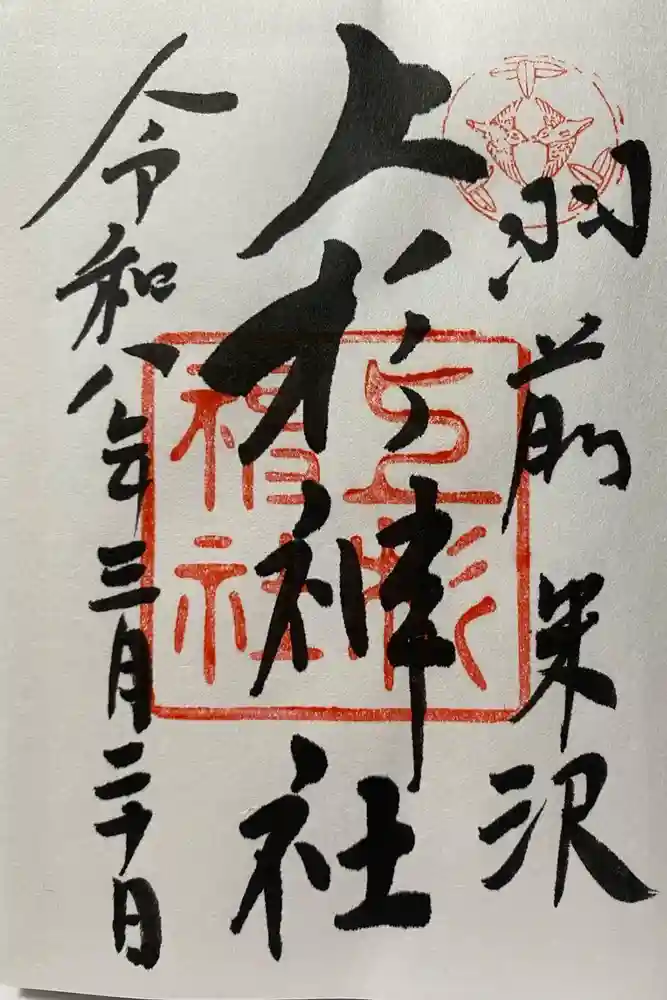 羽前米沢
上杉神社
令和八年三月二十日
上杉神社